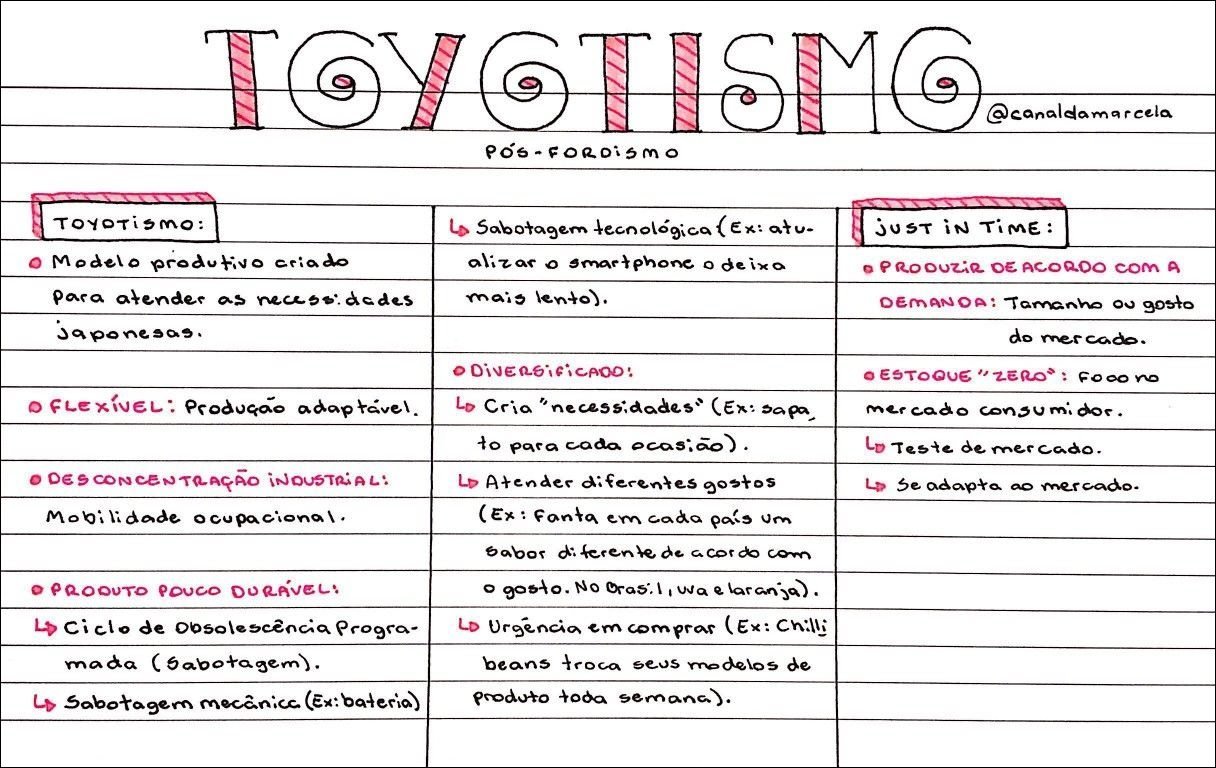 TOYOTISMO
@canaldamarcela
PÓS-FORDISMO
TOYOTISMO:
• Modelo produtivo criado
para atender as necessidades
japonesas.
• FLEXÍVEL: Produção adaptável.
• DESCONCENTRAÇÃO INDUSTRIAL:
Mobilidade ocupacional.
• PRODUTO POUCO DURÁVEL:
↳ Ciclo de Obsolescência Progra-
mada (Sabotagem).
↳ Sabotagem mecânica (Ex: bateria)
↳ Sabotagem tecnológica (Ex: atu-
alizar o smartphone o deixa
mais lento).
• DIVERSIFICADO:
↳ Cria "necessidades" (Ex: sapa_
to para cada ocasião).
↳ Atender diferentes gostos
(Ex: Fanta em cada país um
sabor diferente de acordo com
o gosto. No Brasil, uva e laranja).
↳ Urgência em comprar (Ex: Chilli
beans troca seus modelos de
produto toda semana).
JUST IN TIME:
• PRODUZIR DE ACORDO COM A
DEMANDA: Tamanho ou gosto
do mercado.
• ESTOQUE "ZERO": Foco no
mercado consumidor.
↳ Teste de mercado.
↳ Se adapta ao mercado.